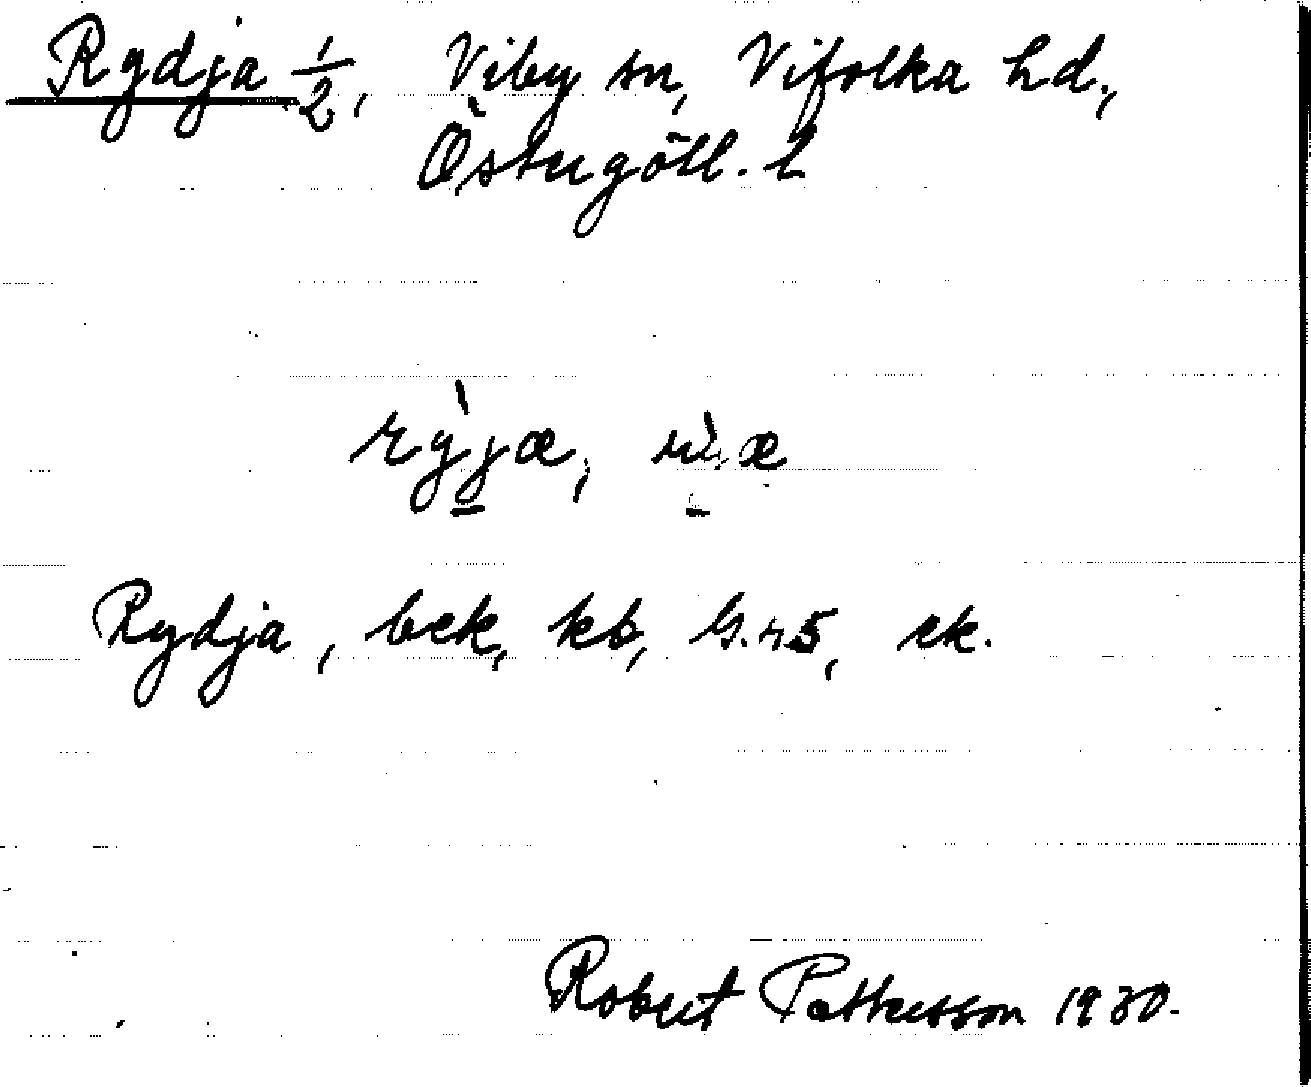 Rydja 1/2, Viby sn, Vifolka hd.,
Östergötl. l
rỳjæ,
Rydja, bek, kb, G.45, ek.
Robert Pettersson 1930.